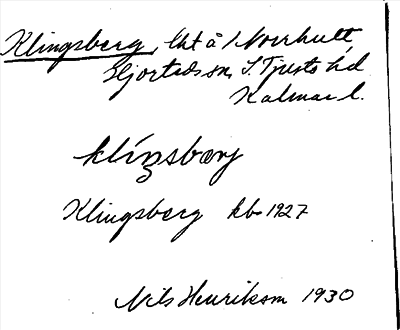 Klingsberg, lht å Norrhult,
Hjorteds sn, S. Tjusts hd
Kalmar l.
klíŋsbærj
Klingsberg kb 1927
Nils Henrikson 1930